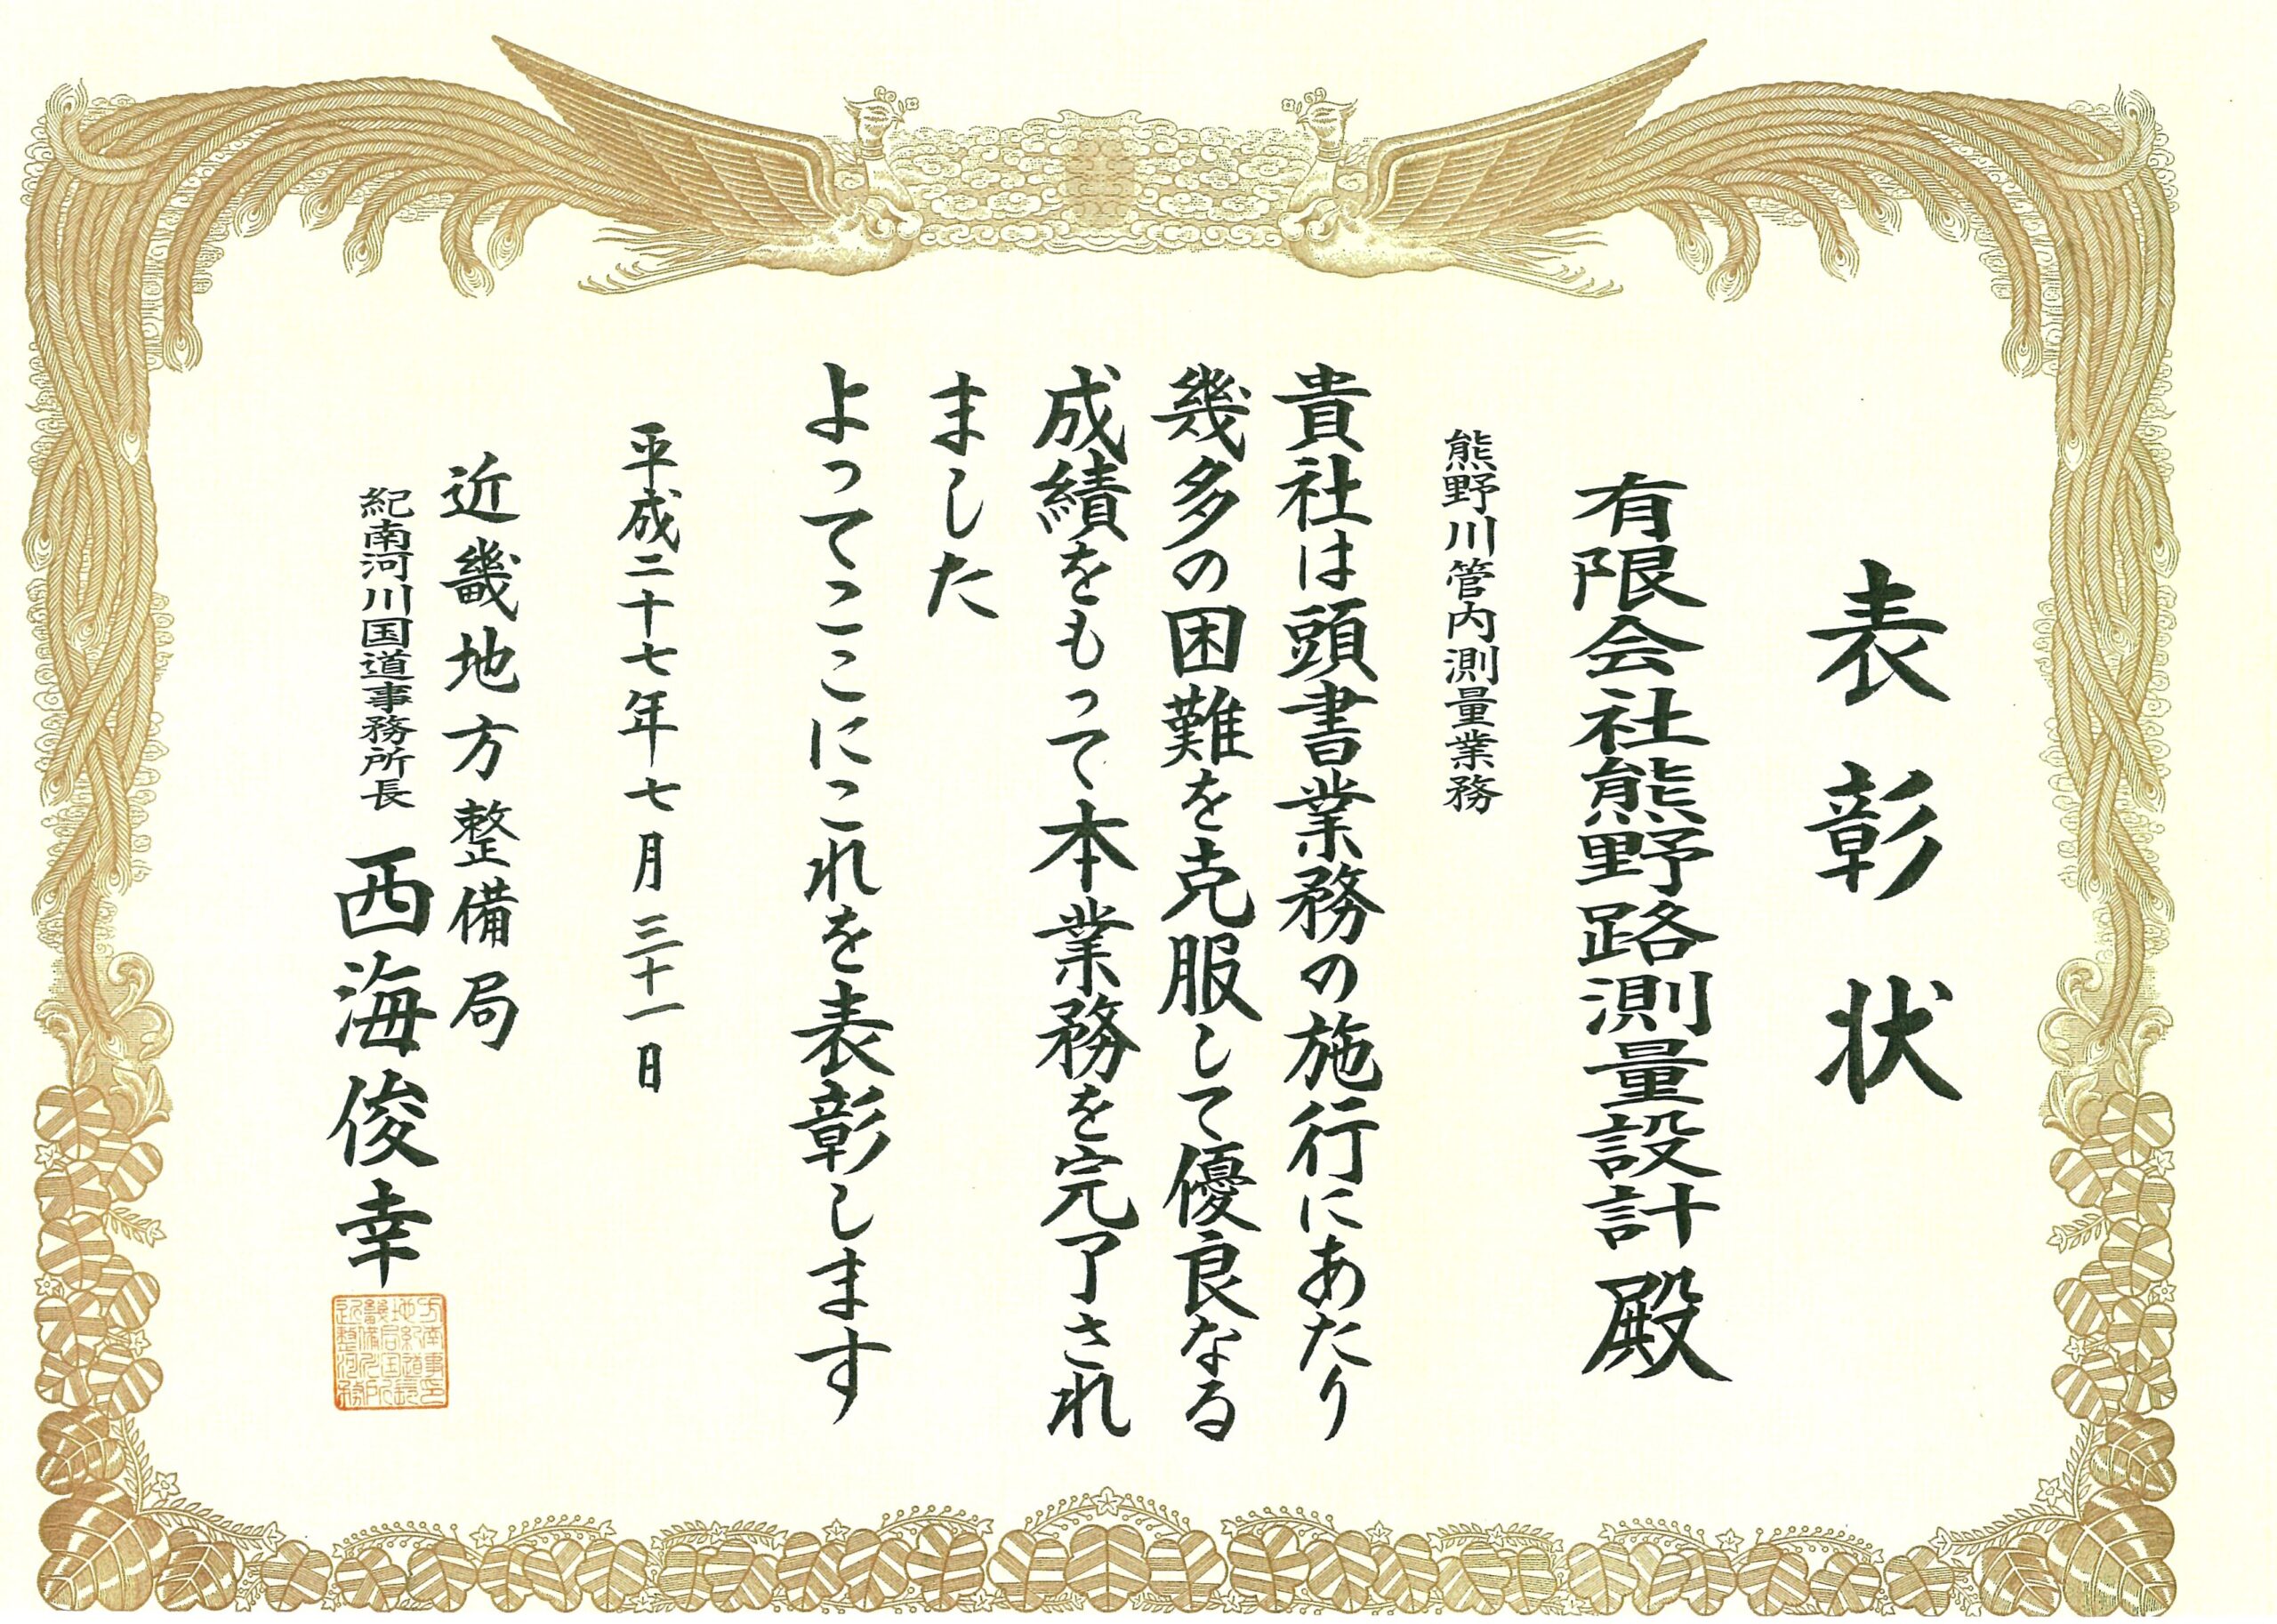 表彰状
有限会社熊野路測量設計殿
熊野川管内測量業務
貴社は頭書業務の施行にあたり
幾多の困難を克服して優良なる
成績をもって本業務を完了され
ました
よってここにこれを表彰します
平成二十七年七月三十一日
近畿地方整備局
紀南河川国道事務所長 西海俊幸